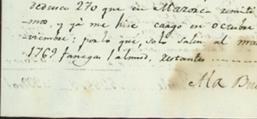 deduscu 270 que en Mazorca remiti
mos y ya me hise cargo en octubre
viembre; por lo que, solo salen al ma
1769 fanegas 1 almud, restantes
Ma Bu